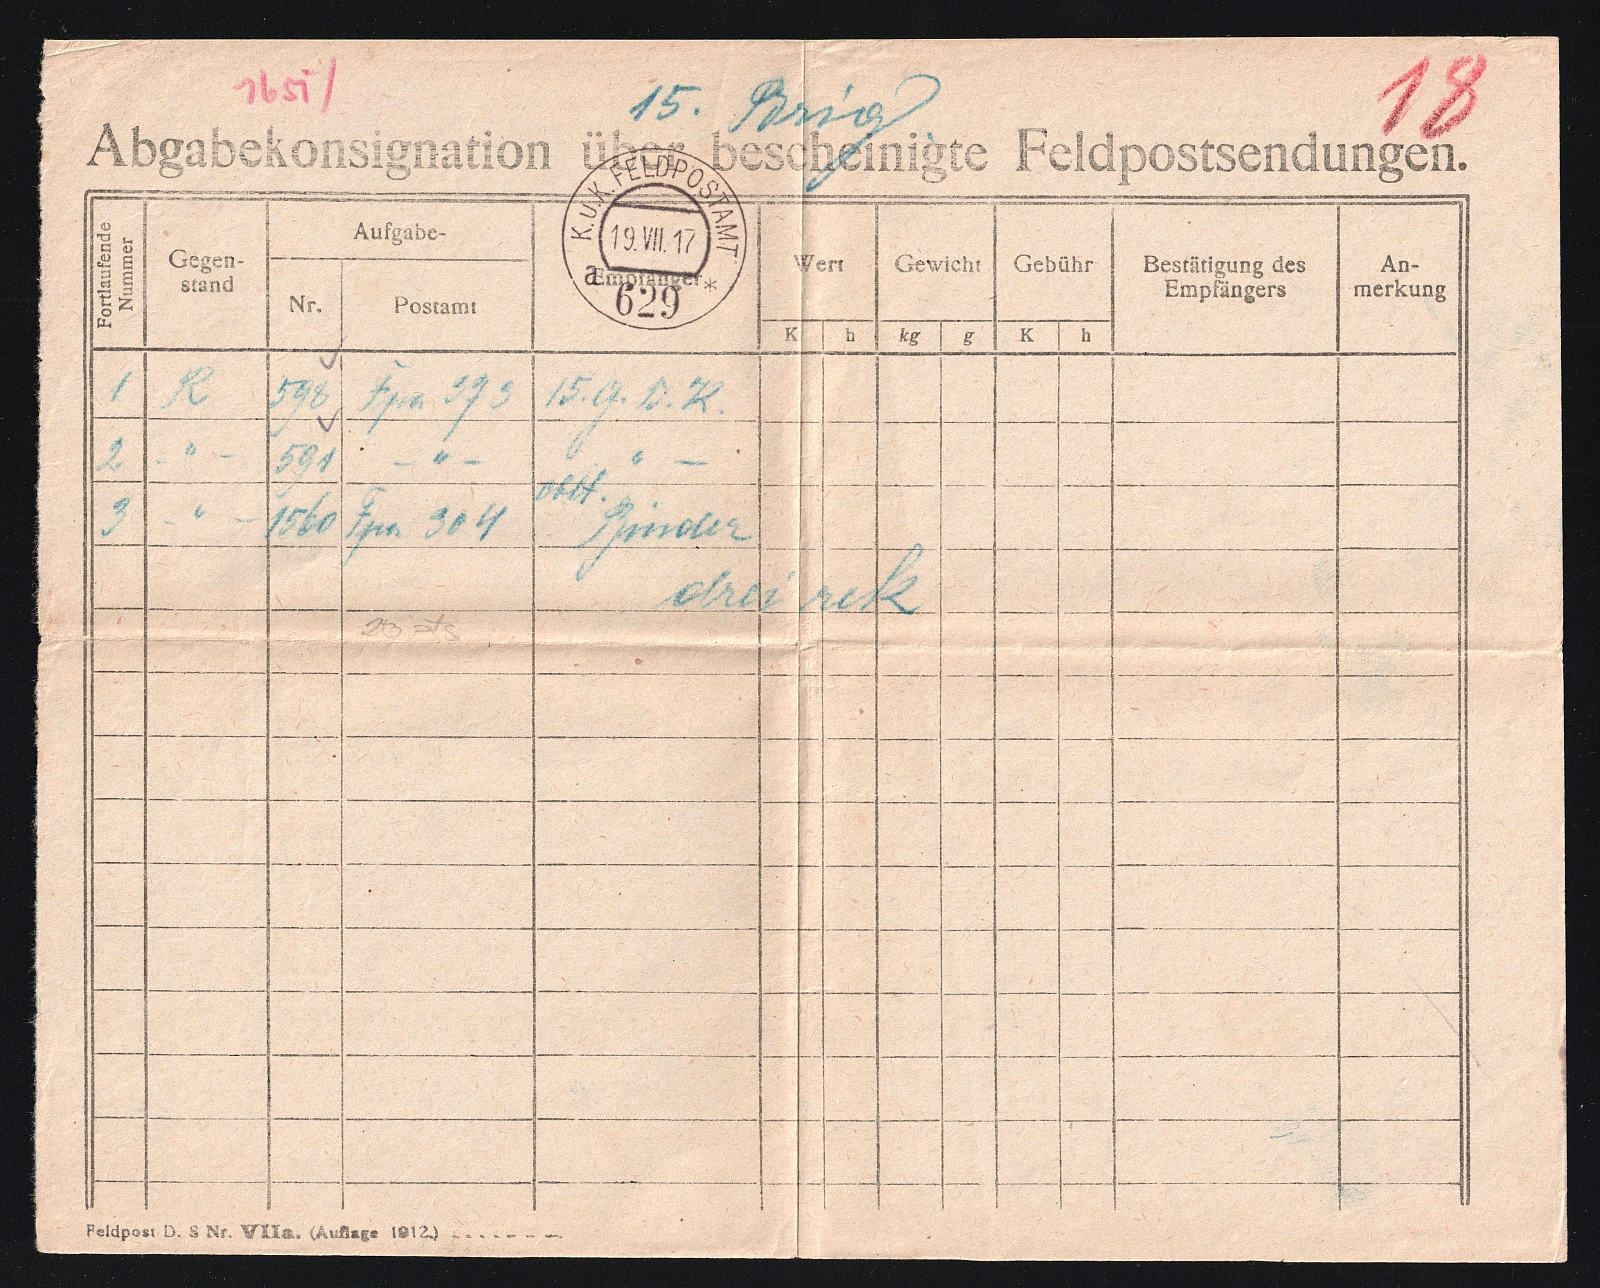 15. Brig
18
Abgabekonsignation über bescheinigte Feldpostsendungen.
K.u.K. FELDPOSTAMT
19.VII.17
a *
629
Fortlaufende Nummer
Gegen-
stand
Aufgabe-
Nr.
Postamt
Empfänger
Wert
K h
Gewicht
kg g
Gebühr
K h
Bestätigung des
Empfängers
An-
merkung
1 R 598 Fpa 393 15. G. D. K.
2 - " - 591 - " - " -
3 - " - 1560 Fpa 304 Oblt. Binder
drei rek
Feldpost D. S Nr. VIIa. (Auflage 1912.)